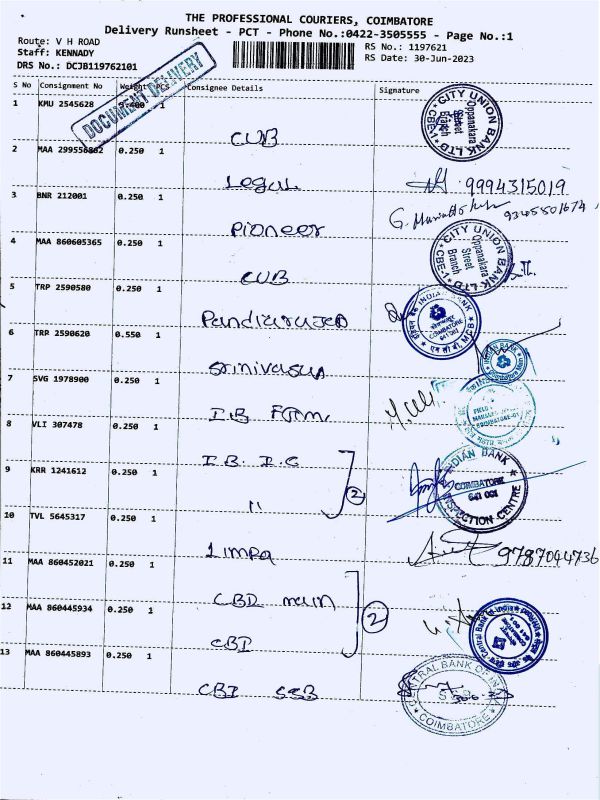 THE PROFESSIONAL COURIERS, COIMBATORE
Delivery Runsheet - PCT - Phone No.:0422-3505555 - Page No.:1
Route: V H ROAD
RS No.: 1197621
Staff: KENNADY
RS Date: 30-Jun-2023
DRS No.: DCJB119762101
DOCUMENT DELIVERY
S No Consignment No Weight PCS Consignee Details Signature
1 KMU 2545628 1
CUB
CITY UNION BANK LTD
Oppanakara Street Branch
CBE-1
2 MAA 299556862 0.250 1
Legal
9994315019
3 BNR 212001 0.250 1
Pioneer
G.
4 MAA 860605365 0.250 1
CUB
CITY UNION BANK LTD
Oppanakara Street Branch
CBE-1
5 TRP 2590580 0.250 1
INDIAN BANK
COIMBATORE
6 TRP 2590620 0.550 1
Srinivasan
INDIAN BANK
7 SVG 1978900 0.250 1
I.B Form
8 VLI 307478 0.250 1
I.B. I.C
2
INDIAN BANK
COIMBATORE
641 001
INSPECTION CENTRE
9 KRR 1241612 0.250 1
"
10 TVL 5645317 0.250 1
9787044736
11 MAA 860452021 0.250 1
CBI main
2
12 MAA 860445934 0.250 1
CBI
Central Bank of India
13 MAA 860445893 0.250 1
CBI SSB
CENTRAL BANK OF INDIA
COIMBATORE